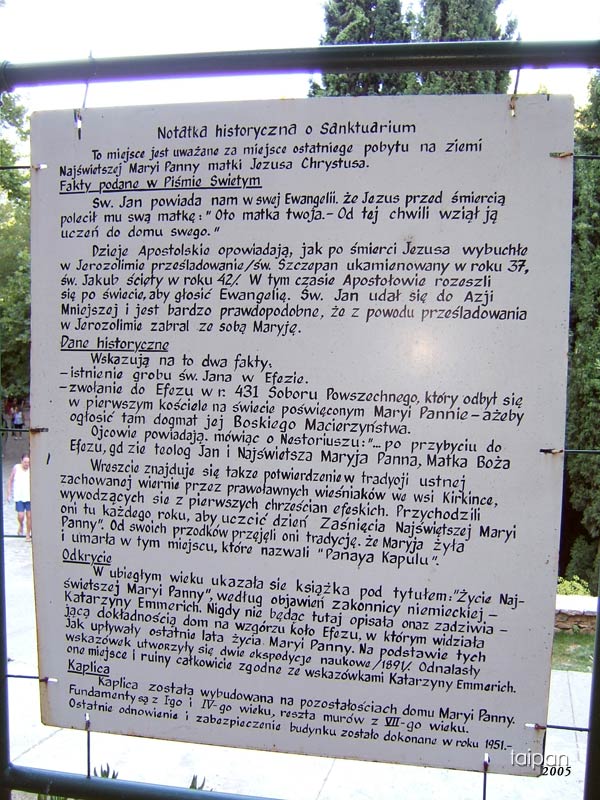 Notatka historyczna o Sanktuarium
To miejsce jest uważane za miejsce ostatniego pobytu na ziemi
Najświętszej Maryi Panny matki Jezusa Chrystusa.
Fakty podane w Piśmie Swietym
Św. Jan powiada nam w swej Ewangelii, że Jezus przed śmiercią
polecił mu swą matkę: "Oto matka twoja.- Od tej chwili wziął ją
uczeń do domu swego."
Dzieje Apostolskie opowiadają, jak po śmierci Jezusa wybuchłe
w Jerozolimie prześladowanie/św. Szczepan ukamienowany w roku 37,
św. Jakub ścięty w roku 42/. W tym czasie Apostołowie rozeszli
się po świecie, aby głosić Ewangelię. Św. Jan udał się do Azji
Mniejszej i jest bardzo prawdopodobne, że z powodu prześladowania
w Jerozolimie zabrał ze sobą Maryję.
Dane historyczne
Wskazują na to dwa fakty:
-istnienie grobu św. Jana w Efezie.
-zwołanie do Efezu w r. 431 Soboru Powszechnego, który odbył się
w pierwszym kościele na świecie poświęconym Maryi Pannie-ażeby
ogłosić tam dogmat jej Boskiego Macierzyństwa.
Ojcowie powiadają, mówiąc o Nestoriuszu: "... po przybyciu do
Efezu, gd zie teolog Jan i Najświętsza Maryja Panna, Matka Boża
Wreszcie znajduje się także potwierdzenie w tradycji ustnej
zachowanej wiernie przez prawosławnych wieśniaków we wsi Kirkince,
wywodzących sie z pierwszych chrześcian efeskich. Przychodzili
oni tu każdego roku, aby uczcić dzień Zaśnięcia Najświętszej Maryi
Panny". Od swoich przodków przejęli oni tradycję, że Maryja żyła
i umarła w tym miejscu, które nazwali "Panaya Kapulu".
Odkrycie
W ubiegłym wieku ukazała sie książka pod tytułem: "Życie Naj-
świętszej Maryi Panny", według objawień zakonnicy niemieckiej -
Katarzyny Emmerich. Nigdy nie będąc tutaj opisała onaz zadziwia-
jącą dokładnością dom na wzgórzu koło Efezu, w którym widziała
Jak upływały ostatnie lata życia Maryi Panny. Na podstawie tych
wskazówek utworzyły się dwie ekspedycje naukowe /1891/. Odnalasły
one miejsce i ruiny całkowicie zgodne ze wskazówkami Katarzyny Emmerich.
Kaplica
Kaplica została wybudowana na pozostałościach domu Maryi Panny.
Fundamenty są z I go i IV-go wieku, reszta murów z VII-go wieku.
Ostatnie odnowienie i zabezpieczenie budynku zostało dokonane w roku 1951.-
taipan
2005